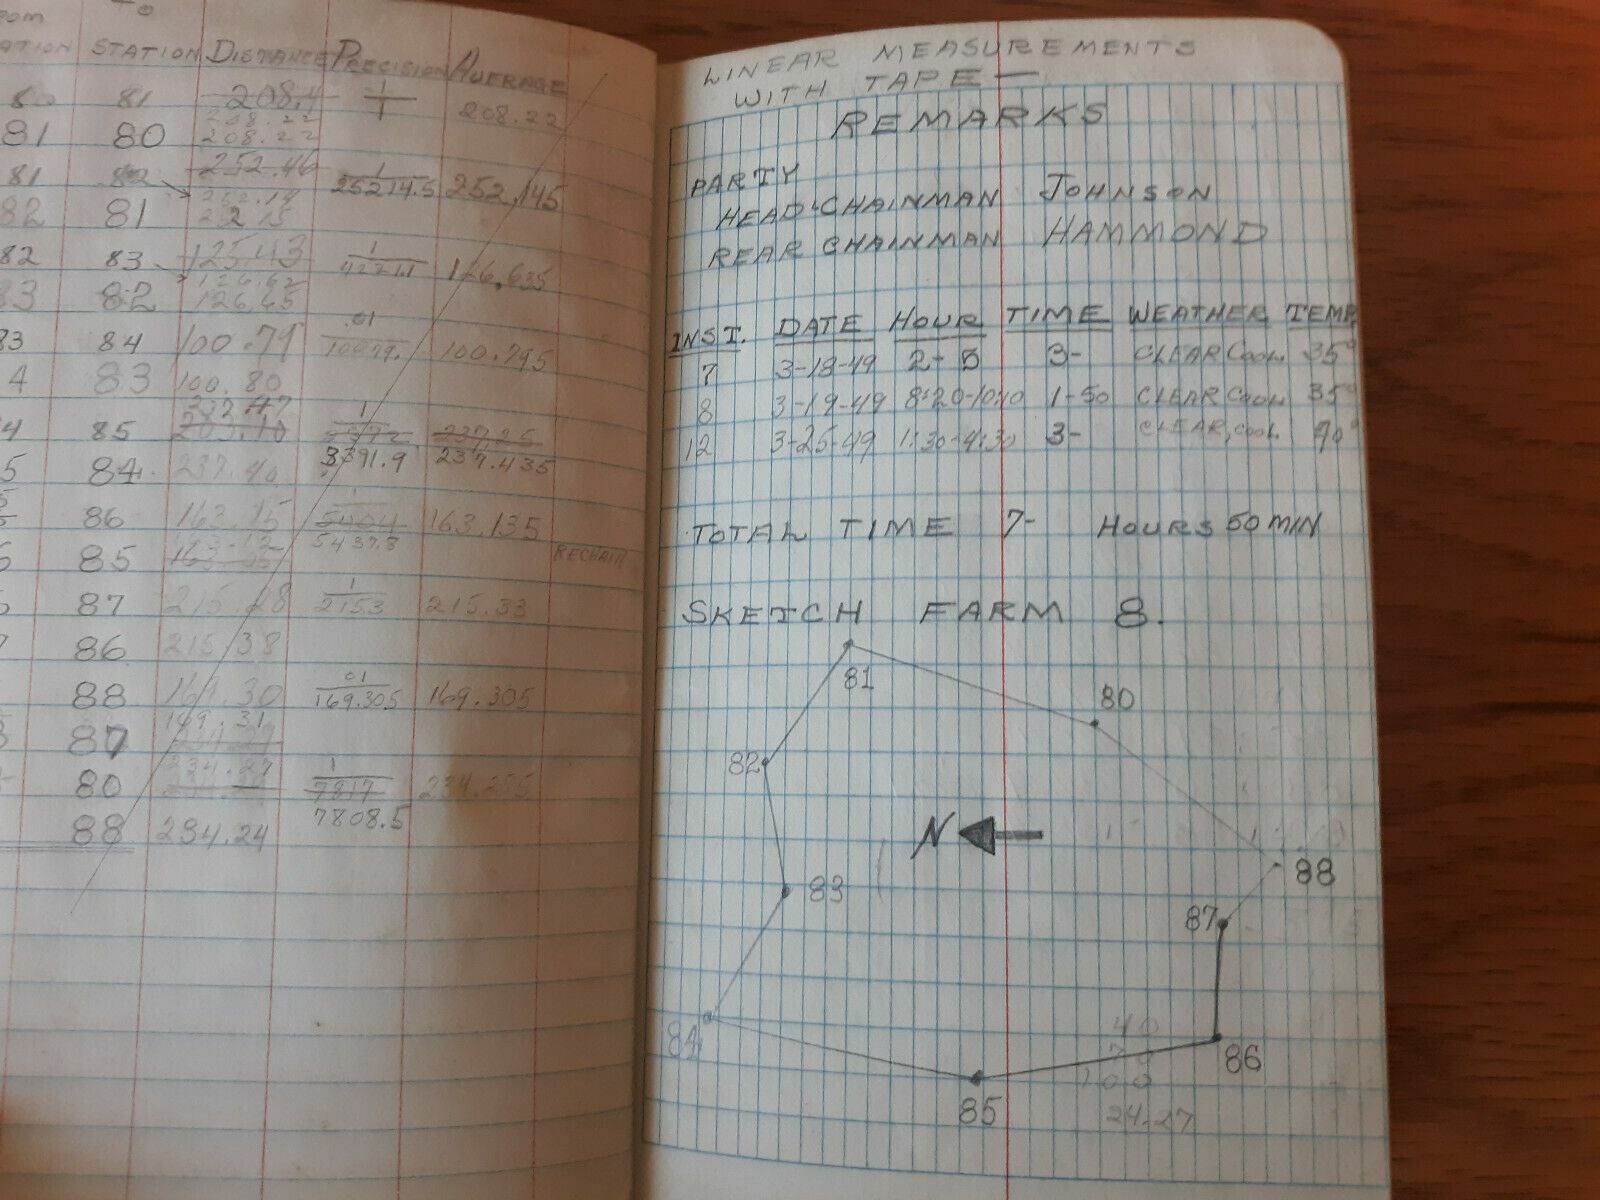 To
ATION STATION DISTANCE PRECISION AVERAGE
80 81 208.4 1/1 208.22
208.22
81 80 208.22
81 82 252.46 1/25214.5 252.145
252.14
82 81 252.15
82 83 125.43 1 126.635
126.62
83 82 126.65
83 84 100.79 .01/10079. 100.795
4 83 100.80
237.47
4 85 203.10 1 237.25
3391.9 237.435
5 84 237.40
86 163.15 1/5404 163.135
163.12 5437.8
85 163.05 RECHAIN
87 215.28 1/2153 215.33
86 215.38
88 169.30 .01/169.305 169.305
169.31
87
234.27 1
80 7817 234.255
7808.5
88 234.24
LINEAR MEASUREMENTS
WITH TAPE —
REMARKS
PARTY
HEAD CHAINMAN JOHNSON
REAR CHAINMAN HAMMOND
INST. DATE HOUR TIME WEATHER TEMP.
7 3-18-49 2-5 3- CLEAR COOL 35°
8 3-19-49 8:20-10:10 1-50 CLEAR COOL 35°
12 3-25-49 1:30-4:30 3- CLEAR, COOL 40°
TOTAL TIME 7- HOURS 50 MIN
SKETCH FARM 8.
81
80
82
N
83
88
87
84
40
86
100
85
24.27